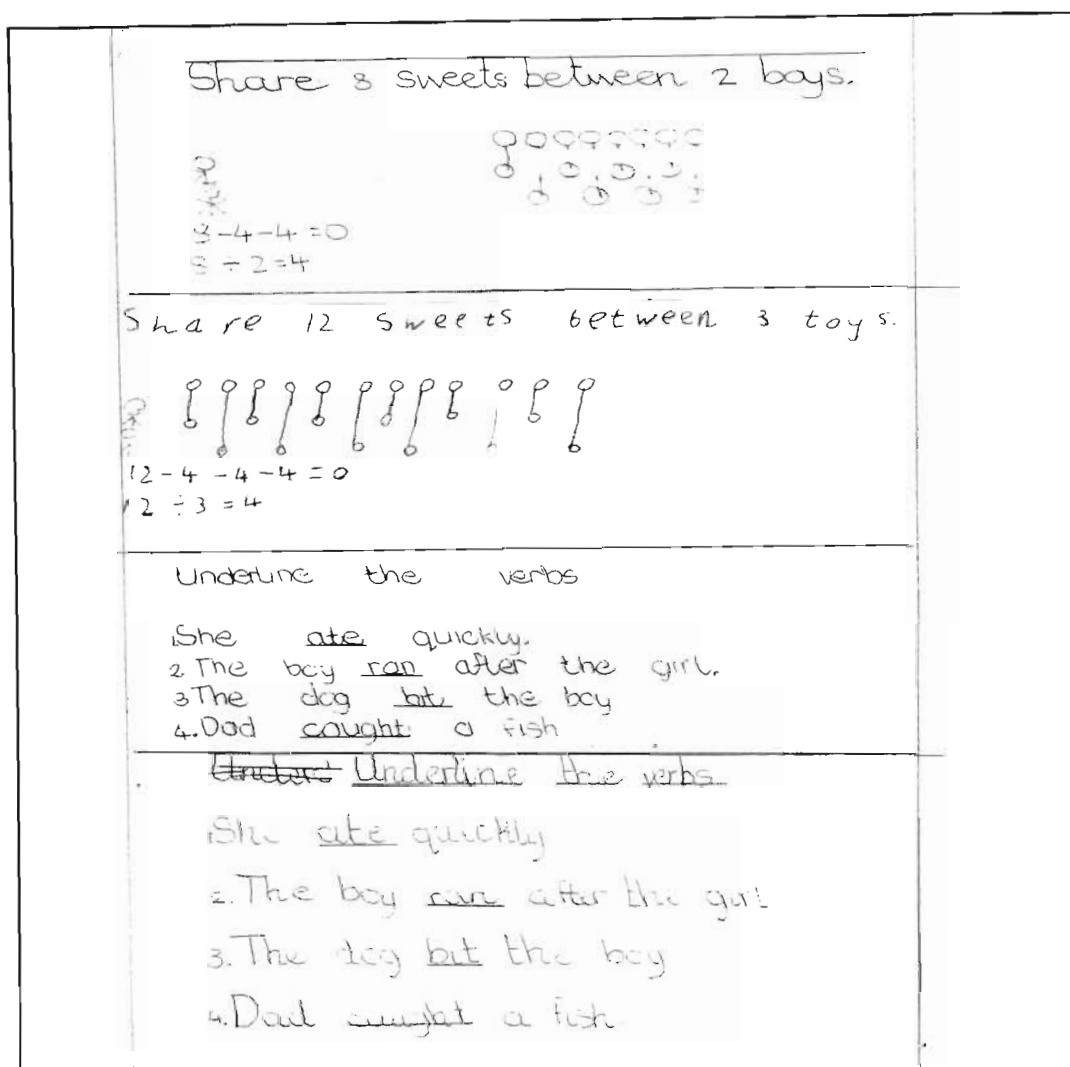 Share 8 sweets between 2 boys.
8-4-4=0
8÷2=4
Share 12 sweets between 3 toys.
12-4-4-4=0
12÷3=4
Underline the verbs
1.She ate quickly.
2 The boy ran after the girl.
3 The dog bit the boy
4. Dad caught a fish
Underline the verbs
1.She ate quickly
2. The boy ran after the girl
3. The dog bit the boy
4. Dad caught a fish.